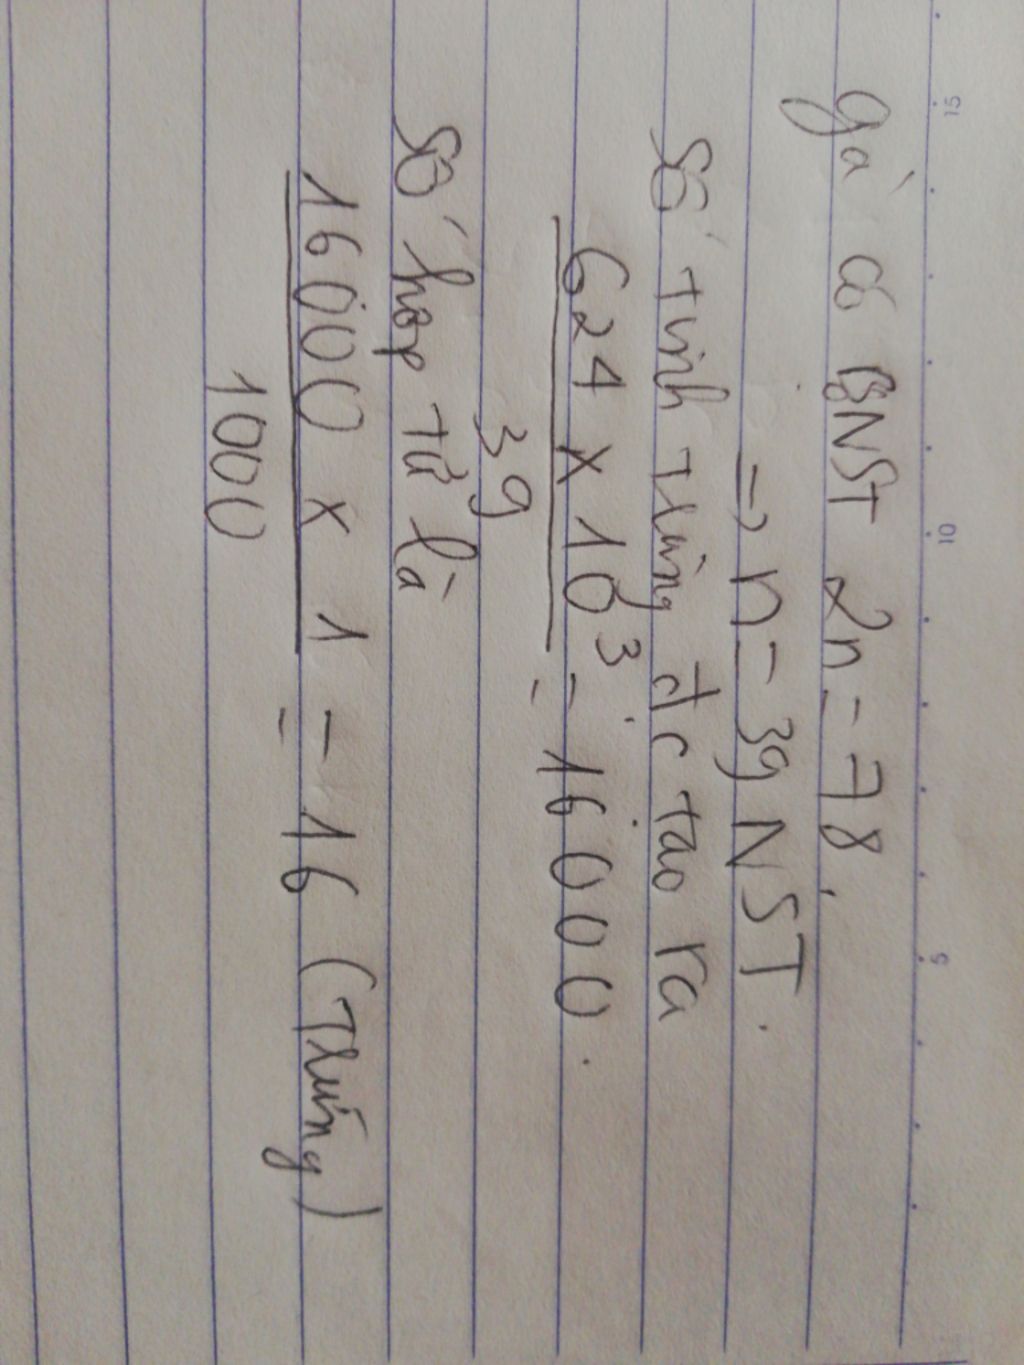 gà có BNST 2n = 78.
=> n = 39 NST.
Số tinh trùng đc tạo ra
624 x 10³ = 16000.
39
Số hợp tử là
16000 x 1 = 16 (Trứng)
1000
15
10
5